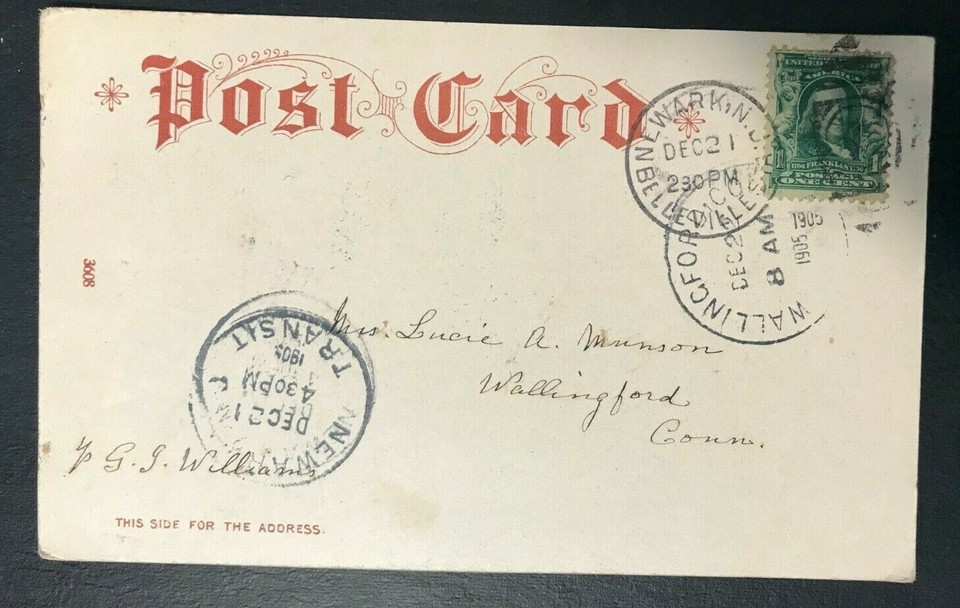 Post Card
UNITED
AMERICA
FRANKLIN
1 1
POSTAGE
ONE CENT
NEWARK, N.J.
DEC 21
230 PM
1905
BELLEVILLE
WALLINGFORD
DEC 2
8 AM
1905
3608
NEWARK, N.J.
DEC 21
430 PM
1905
TRANSIT
Mrs. Lucie A. Munson
Wallingford
Conn.
G. I. Williams
THIS SIDE FOR THE ADDRESS.